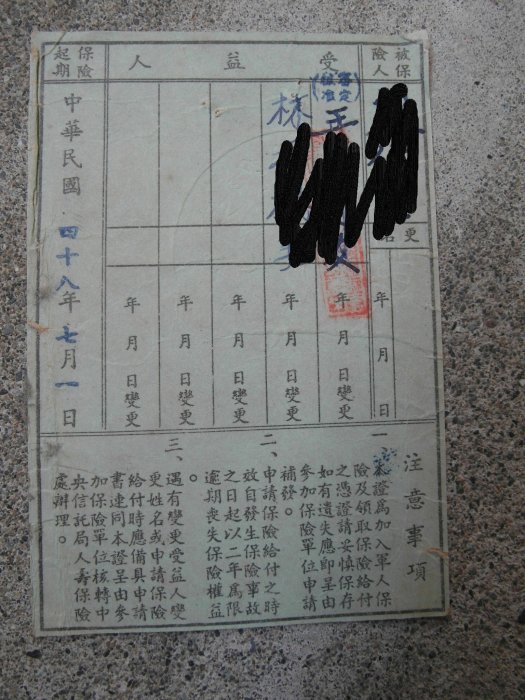 被保險人
受益人
保險起期
審定
核准
王
林
更名
年月日
年月日變更
年月日變更
年月日變更
年月日變更
年月日變更
中華民國四十八年七月一日
注意事項
一、本證為加入軍人保
險及領取保險給付
之憑證請妥慎保存
如有遺失應即呈由
參加保險單位申請
補發。
二、申請保險給付之時
效自發生保險事故
之日起以二年為限
逾期喪失保險權益
。
三、遇有變更受益人變
更姓名或申請保險
給付時應備具申請
書連同本證呈由參
加保險單位核轉中
央信託局人壽保險
處辦理。